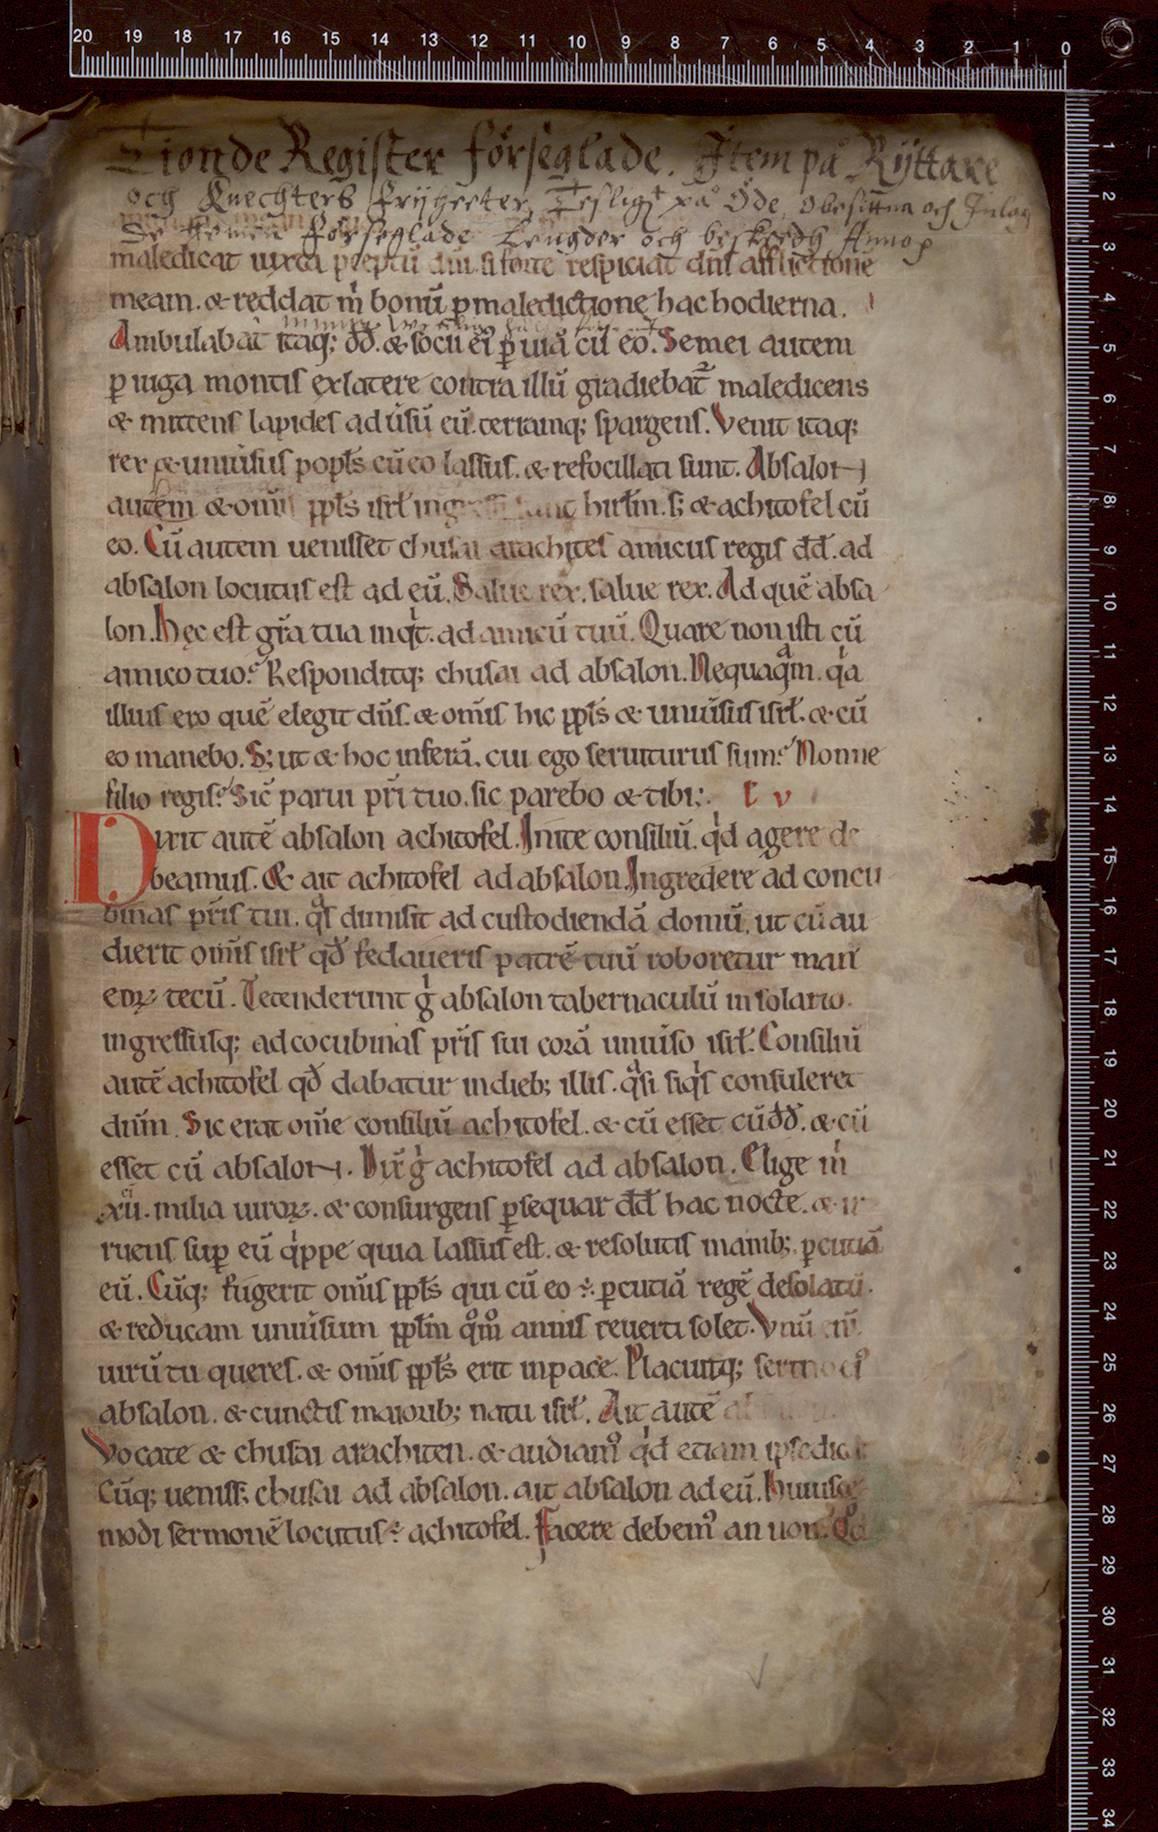 Tionde Register förseglade. Item på Ryttare
och Knechters frijheeter, Teslig på Öde, obesittna och Inlag
förseglade Lengder och beskeedh Anno
maledicat iuxta p̄ceptū dn̄i. si forte respiciat dn̄s afflictionē
meam. & reddat m̄ bonū p maledictione hac hodierna.
Ambulabat itaq; dd̄. & socii ei᷒ p uiā cū eo. Semei autem
p iuga montis ex latere contra illū gradiebat᷑ maledicens
& mittens lapides aduersū eū. terramq; spargens. Venit itaq;
rex & uniūsus popl̄s cū eo lassus. & refocillati sunt. Absalon
autem & om̄is ppl̄s isrl̄ ingressi sunt hirl̄m. s; & achitofel cū
eo. Cū autem uenisset chusai arachites amicus regis dd̄. ad
absalon locutus est ad eū. Salue rex. salue rex. Ad quē absa
lon. Hęc est gr̄a tua inqͥt. ad amicū tuū. Quare non isti cū
amico tuo? Responditq; chusai ad absalon. Nequaqͣm. qͥa
illius ero quē elegit dn̄s. & om̄is hic ppl̄s & uniūsus isrl̄. & cū
eo manebo. S; ut & hoc inferā. cui ego seruiturus sum? Nonne
filio regis? Sic̄ parui pr̄i tuo. sic parebo & tibi;.
Dixit autē absalon achitofel. Inite consiliū. qͥd agere de
beamus. & ait achitofel ad absalon. Ingredere ad concu
binas pr̄is tui. qͣs dimisit ad custodiendā domū. ut cū au
dierit om̄is isrl̄ qd̄ fedaueris patrē tuū roboretur man᷒
eoꝝ tecū. Tetenderunt gͥ absalon tabernaculū in solario.
ingressusq; ad cōcubinas pr̄is sui corā uniūso isrl̄. Consiliū
autē achitofel qd̄ dabatur in dieb; illis. qͣsi siqͥs consuleret
dn̄m. Sic erat om̄e consiliū achitofel. & cū esset cū dd̄. & cū
esset cū absalon. Dix̄ gͥ achitofel ad absalon. Elige m̄
xii. milia uiroꝝ. & consurgens p̄sequar dd̄ hac nocte. & ir
ruens sup eū qͥppe quia lassus est. & resolutis manib; p̄cutiā
eū. Cūq; fugerit om̄is ppl̄s qui cū eo ÷. p̄cutiā regē desolatū.
& reducam uniūsum ppl̄m qͦmͦ annis reuerti solet. Vnū en̄
uirū tu queres. & om̄is ppl̄s erit in pace. Placuitq; sermo ei᷒
absalon. & cunctis maiorib; natu isrl̄. Ait autē
Vocate & chusai arachiten. & audiam᷒ qͥd etiam ipse dicat
Cūq; uenisset chusai ad absalon. ait absalon ad eū. Huiusce
modi sermonē locutus ÷ achitofel. Facere debem᷒ an non. Qͥd